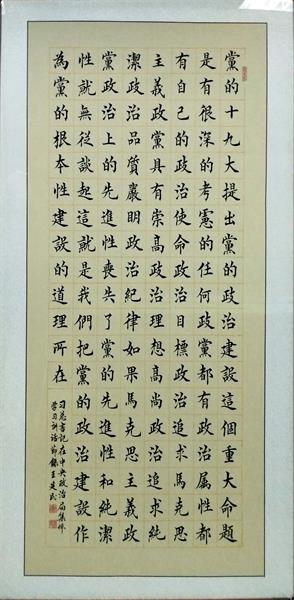 黨的十九大提出黨的政治建設這個重大命題
是有很深的考憲的任何政黨都有政治屬性都
有自己的政治使命政治目標政治追求馬克思
主義政黨具有崇高政治理想高尚政治追求純
潔政治品質嚴明政治紀律如果馬克思主義政
黨政治上的先進性喪失了黨的先進性和純潔
性就無從談起這就是我們把黨的政治建設作
為黨的根本性建設的道理所在
习总書记在中央政治局集体
学习讲话節錄